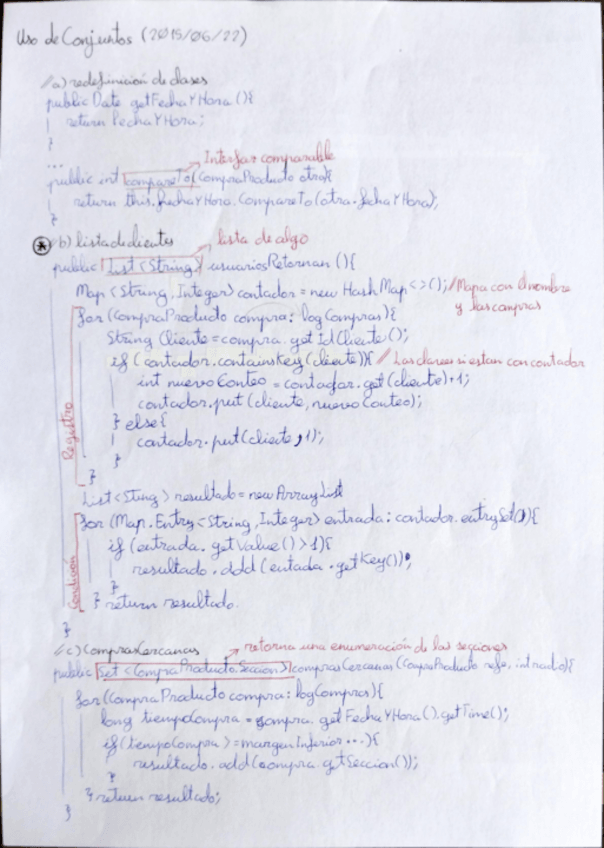 Uso de Conjuntos (2015/06/22)
// a) redefinición de clases
public Date getFechaYHora (){
return FechaYHora;
}
...
Interfaz comparable
public int compareTo (CompraProducto otra){
return this.fechaYHora.CompareTo (otra.fechaYHora);
}
* b) lista de clientes
lista de algo
public List <String> usuariosRetornan (){
Map <String, Integer> contador = new HashMap <> (); // Mapa con el nombre
y las compras
for (CompraProducto compra: logCompras){
String Cliente = compra.getIdCliente ();
if (contador.containsKey (cliente)){ // Las claves si estan con contador
int nuevoConteo = contador.get (cliente)+1;
contador.put (cliente, nuevo Conteo);
} else {
contador.put (cliente, 1);
}
}
Registro
List <Sting> resultado = new ArrayList
for (Map.Entry <String, Integer> entrada: contador.entrySet()){
if (entrada.getValue () > 1){
resultado.add (entada.getKey());
}
} return resultado.
Condición
}
// c) comprasCercanas
retorna una enumeración de las secciones
public Set <CompraProducto.Seccion> comprasCercanas (CompraProducto refe, int radio){
for (CompraProducto compra: logCompras){
long tiempoCompra = compra.getFechaYHora ().getTime();
if (tempoCompra >= margenInferior ...){
resultado.add (compra.gtSeccion());
}
} return resultado;
}